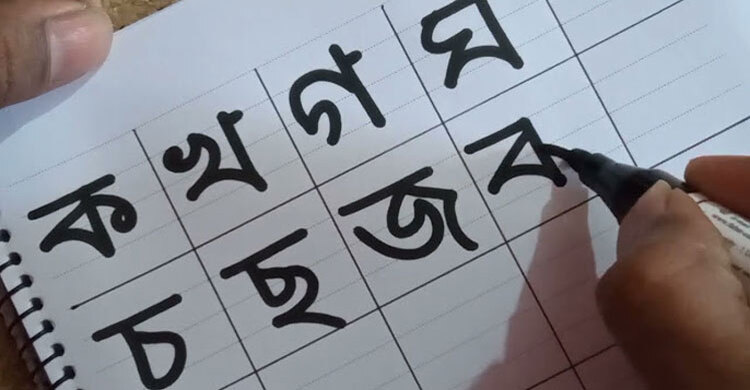 ক খ গ ঘ
চ ছ জ ব